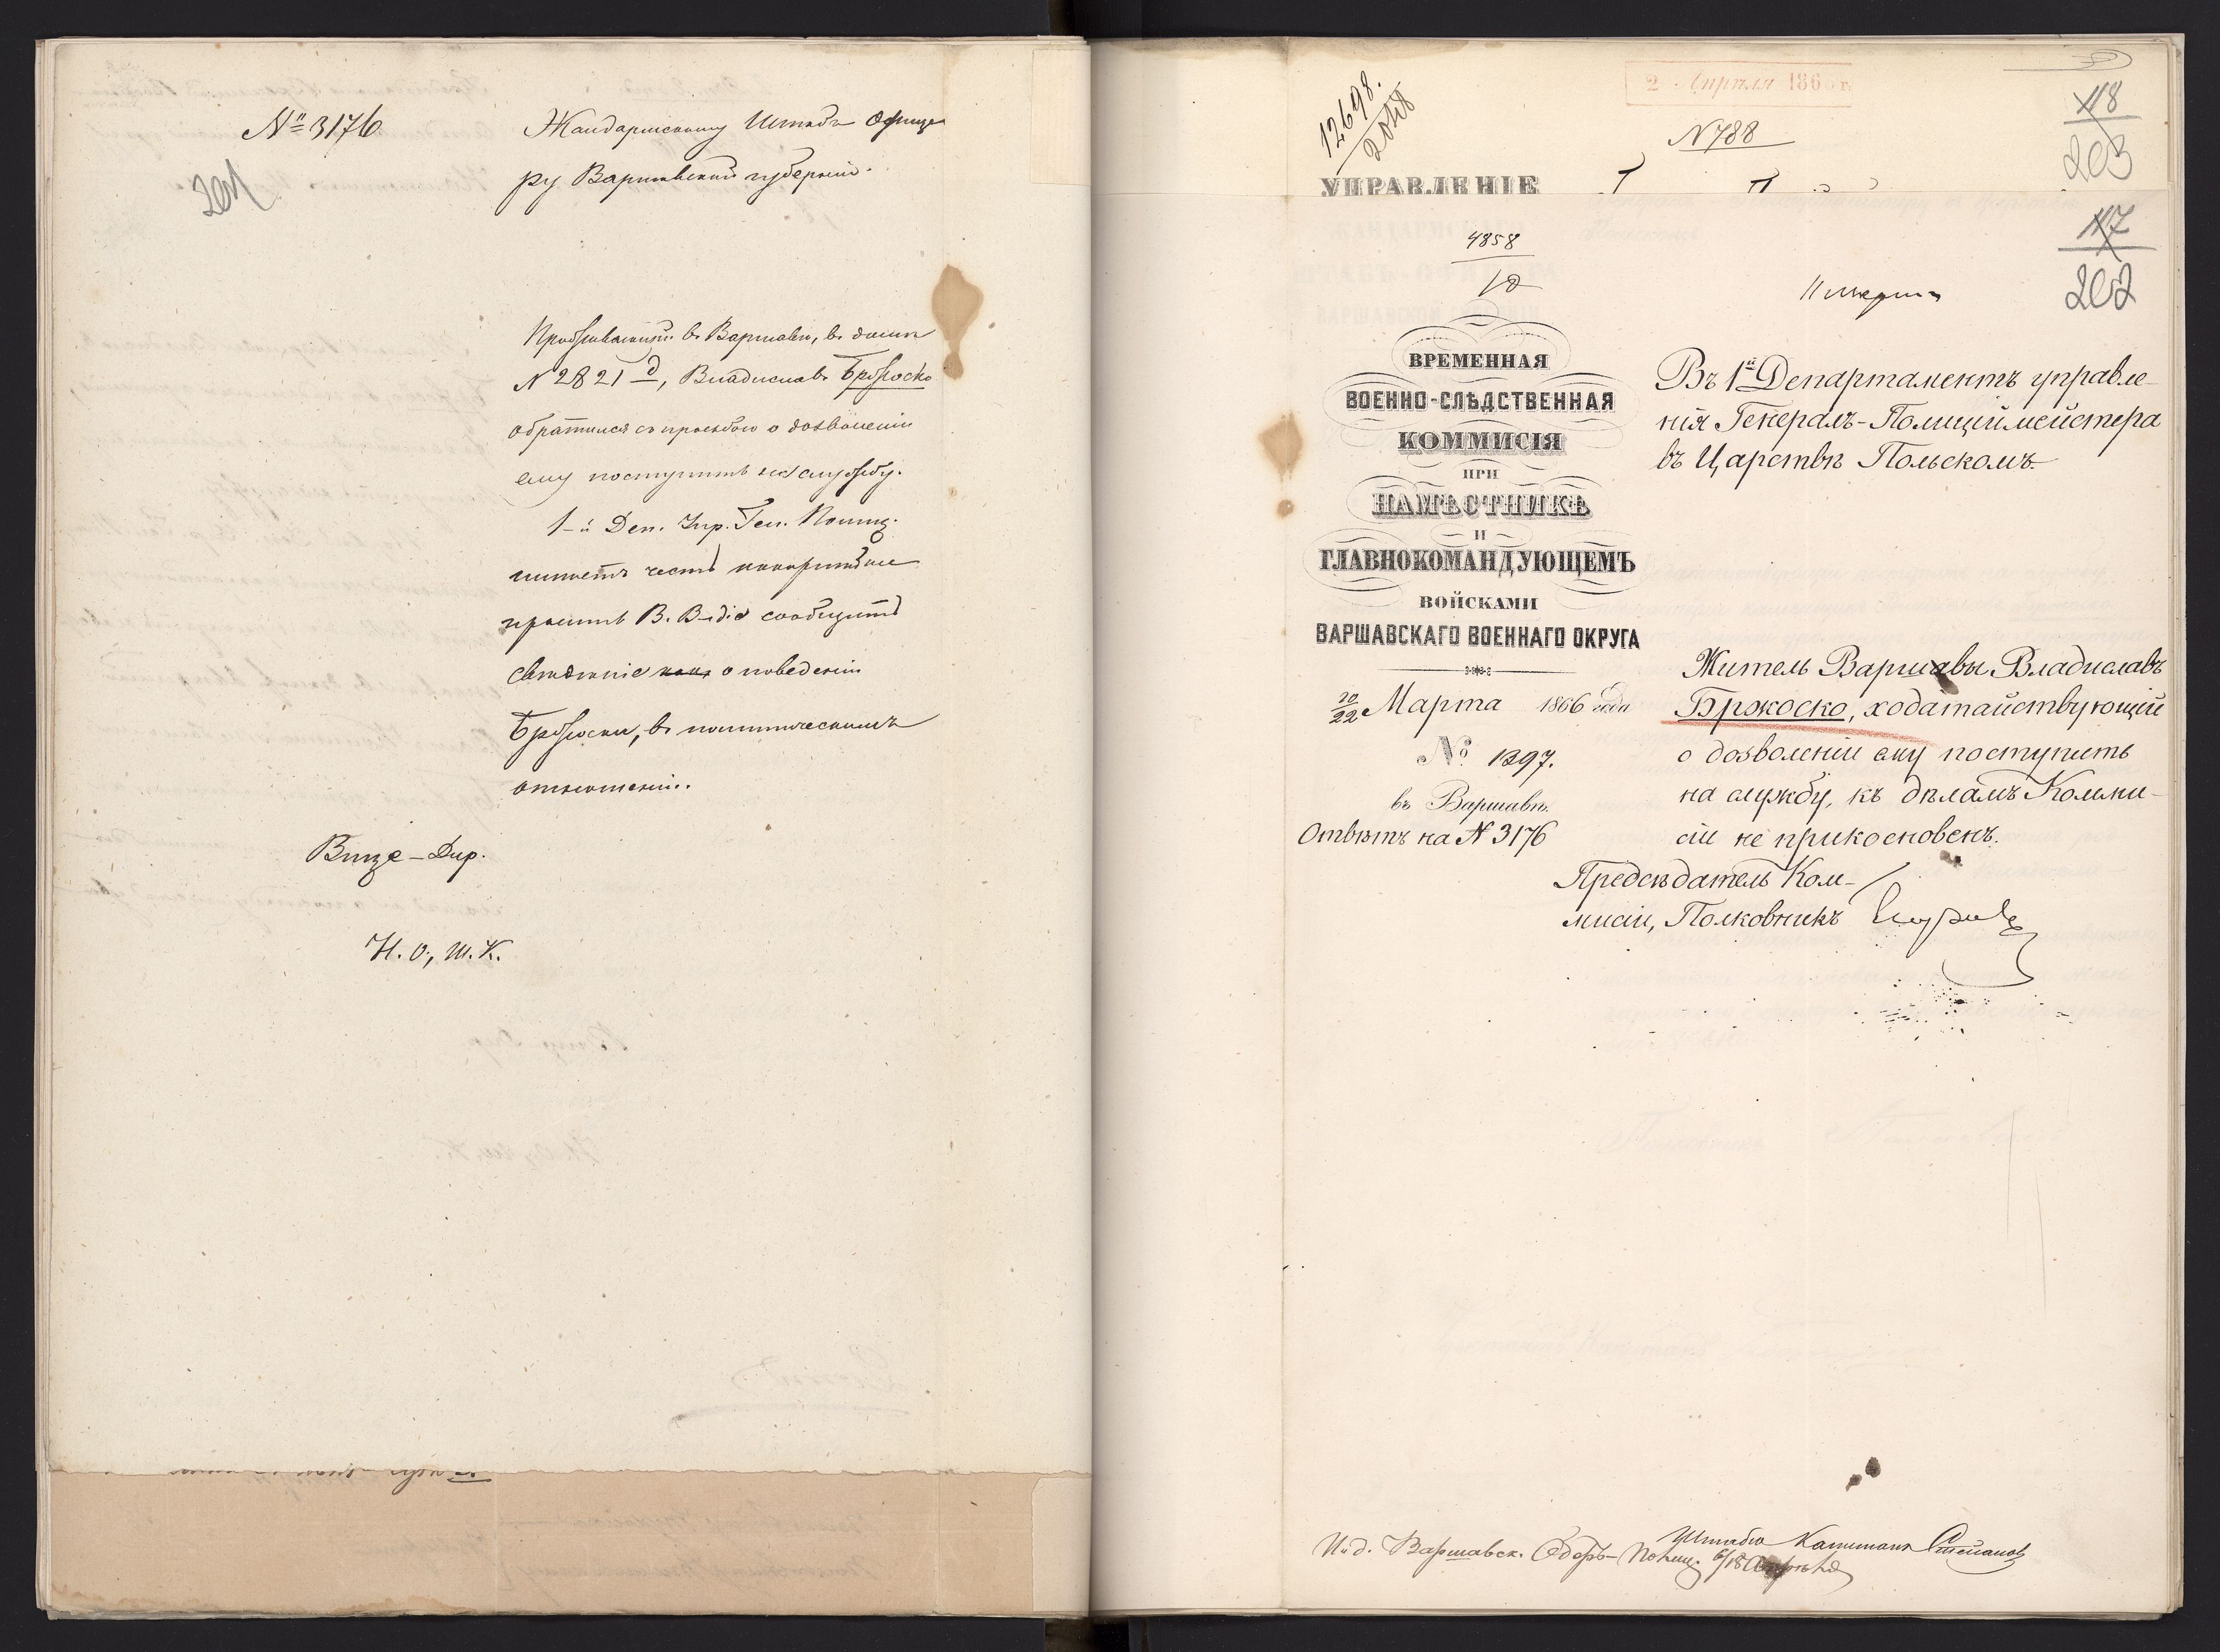 № 3176
201
Жандармскому Штабъ Офице
ру Варшавской губерніи.
Проживающій въ Варшавѣ, въ домѣ
N 2821 д, Владиславъ Бржоско
обратился съ просьбою о дозволеніи
ему поступить на службу.
1-й Деп. Упр. Ген. Полиц.
имѣетъ честь покорнѣйше
просить В. В-діе сообщить
свѣдѣніе о поведеніи
Бржоски, въ политическомъ
отношеніи.
Вице-Дир.
Н. О., Ш. К.
12698.
2 Апрѣля 186 г.
N 788
118
203
УПРАВЛЕНІЕ
4858
117
202
ВРЕМЕННАЯ
ВОЕННО-СЛѢДСТВЕННАЯ
КОММИСІЯ
ПРИ
НАМѢСТНИКѢ
И
ГЛАВНОКОМАНДУЮЩЕМЪ
ВОЙСКАМИ
ВАРШАВСКАГО ВОЕННАГО ОКРУГА
10/22 Марта 1866 года
№ 1297.
въ Варшавѣ.
Отвѣтъ на N 3176
Въ 1й Департаментъ управле-
нія Генералъ-Полицiймейстера
въ Царствѣ Польскомъ.
Житель Варшавы Владиславъ
Бржоско, ходатайствующій
о дозволеніи ему поступить
на службу, къ дѣламъ Комми-
сіи не прикосновенъ.
Предсѣдатель Ком-
мисіи, Полковникъ
И. д. Варшавск. Оберъ-Полиц.
Штабсъ Капитанъ Степановъ
6/18 Апрѣля